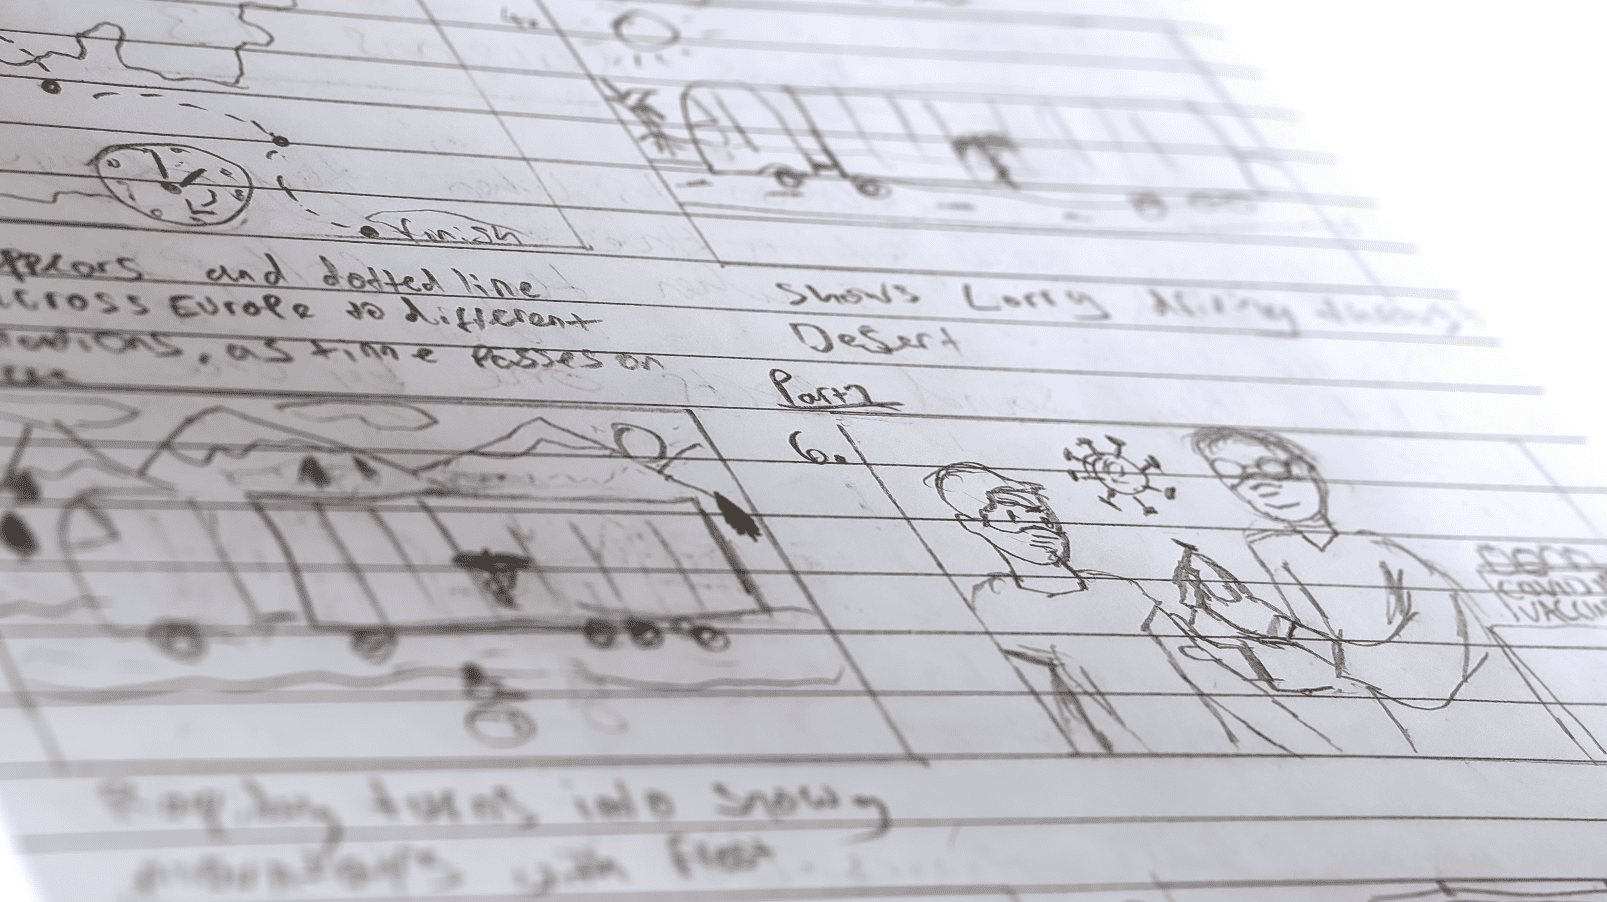 4.
Finish
appears and dotted line
across Europe to different
locations, as time passes on
Shows Lorry driving through
Desert
Part 2
6.
COVID
VACCIN
Rapiday turns into snowy
mountains with